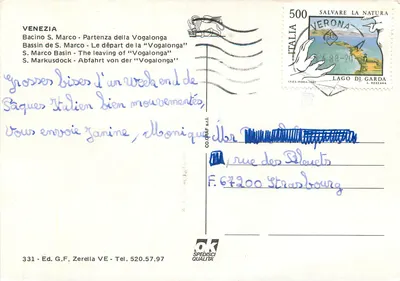 VENEZIA
Bacino S. Marco - Partenza della Vogalonga
Bassin de S. Marco - Le départ de la "Vogalonga"
S. Marco Basin - The leaving of "Vogalonga"
S. Markusdock - Abfahrt von der "Vogalonga"
500 SALVARE LA NATURA
ITALIA
VERONA
LAGO DI GARDA
Grosses bises d'un week end de
Pâques Italien bien mouvementés,
vous envoie Janine, Monique
rue des
F. 67200 Strasbourg
ok
SPEDISCI
QUALITÀ
331 - Ed. G.F. Zerella VE - Tel. 520.57.97